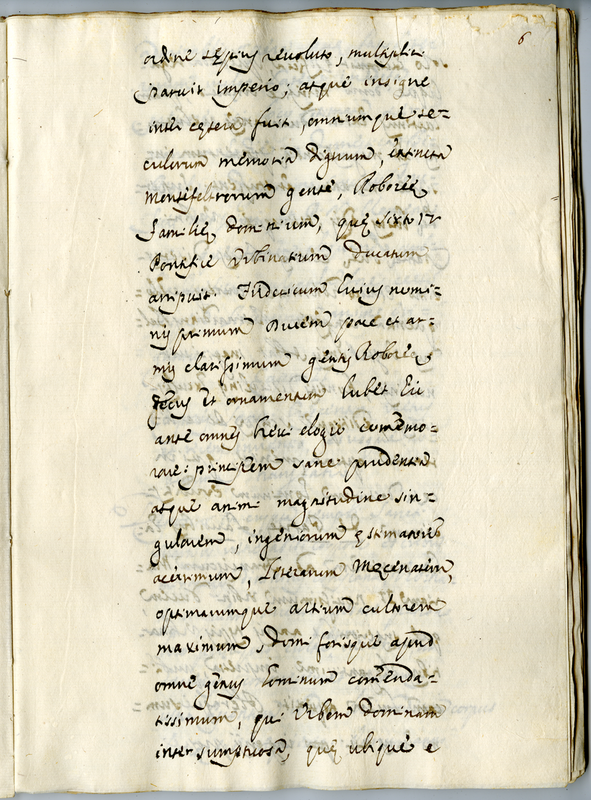 6
ordine sępius revoluto, multiplici
paruit imperio; atque insigne
inter cętera fuit, omniumque se=
culorum memoria dignum, extincta
Montefeltrorum gente, Roboręę
familię dominium, quę sixto IV
Pontifice Urbinatium Ducatum
arripuit. Fridericum huius nomi=
nis primum Ducem pace et ar=
mis clarissimum gentis Roboręę
decus et ornamentum lubet hic
ante omnes brevi elogio commemo=
rare: principem sane prudentia
atque animi magnitudine sin=
gularem, ingeniorum ęstimatorem
acerrimum, literarum Męcenatem,
optimarumque artium cultorem
maximum, domi forisque apud
omne genus hominum commenda=
tissimum, qui Urbem dominam
inter sumptuosa, quę ubique e